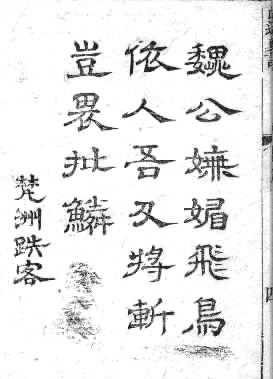 魏公嫵媚飛鳥
依人吾刄將斬
豈畏批鱗
梵洲跌客